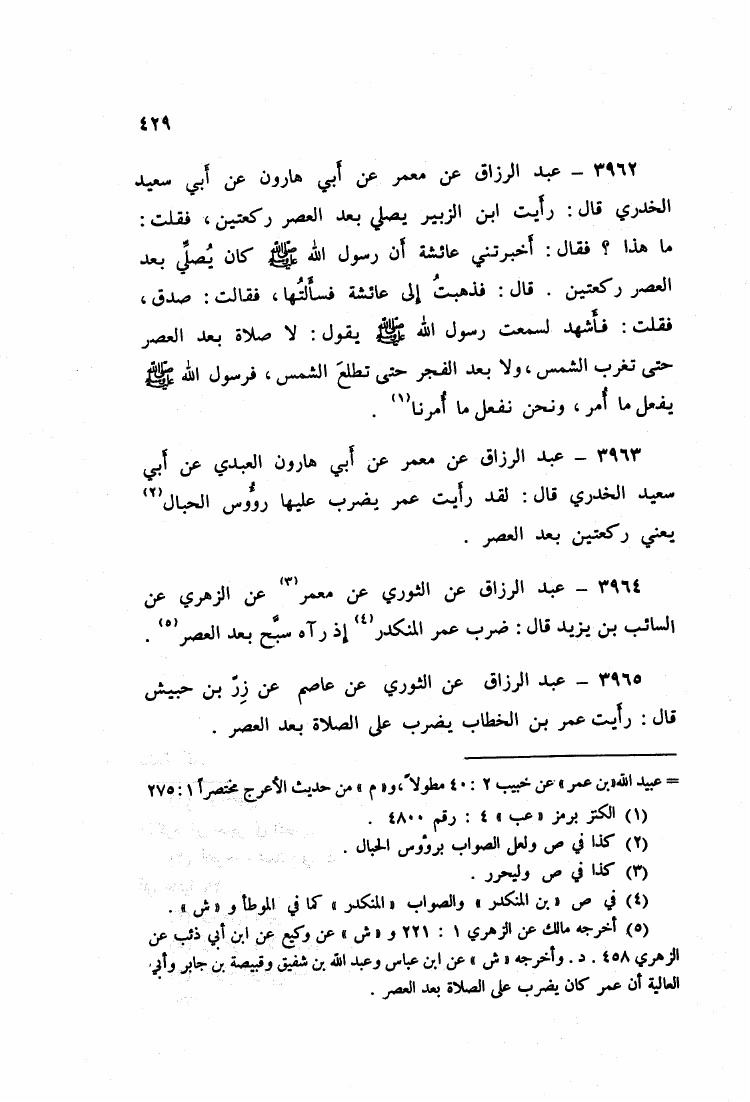 ٤٢٩
٣٩٦٢ – عبد الرزاق عن معمر عن أبي هارون عن أبي سعيد
الخدري قال : رأيت ابن الزبير يصلي بعد العصر ركعتين ، فقلت :
ما هذا ؟ فقال : أخبرتني عائشة أن رسول الله ﷺ كان يُصلِّي بعد
العصر ركعتين . قال : فذهبتُ إلى عائشة فسألتُها ، فقالت : صدق ،
فقلت : فأشهد لسمعت رسول الله ﷺ يقول : لا صلاة بعد العصر
حتى تغرب الشمس ، ولا بعد الفجر حتى تطلعَ الشمس ، فرسول الله ﷺ
يفعل ما أُمر ، ونحن نفعل ما أُمرنا(١) .
٣٩٦٣ – عبد الرزاق عن معمر عن أبي هارون العبدي عن أبي
سعيد الخدري قال : لقد رأيت عمر يضرب عليها روُّوس الحبال(٢)
يعني ركعتين بعد العصر .
٣٩٦٤ – عبد الرزاق عن الثوري عن معمر(٣) عن الزهري عن
السائب بن يزيد قال : ضرب عمر المنكدر(٤) إذ رآه سبَّح بعد العصر(٥) .
٣٩٦٥ – عبد الرزاق عن الثوري عن عاصم عن زِرّ بن حبيش
قال : رأيت عمر بن الخطاب يضرب على الصلاة بعد العصر .
= عبيد الله«بن عمر» عن خبيب ٢ : ٤٠ مطولاً ،و« م » من حديث الأعرج مختصراً ١ : ٢٧٥
(١) الكنز برمز « عب » ٤ : رقم ٤٨٠٠ .
(٢) كذا في ص ولعل الصواب برؤوس الحبال .
(٣) كذا في ص وليحرر .
(٤) في ص « بن المنكدر » والصواب « المنكدر » كما في الموطأ و « ش » .
(٥) أخرجه مالك عن الزهري ١ : ٢٢١ و « ش » عن وكيع عن ابن أبي ذئب عن
الزهري ٤٥٨ . د . وأخرجه « ش » عن ابن عباس وعبد الله بن شفيق وقبيصة بن جابر وأبي
العالية أن عمر كان يضرب على الصلاة بعد العصر .